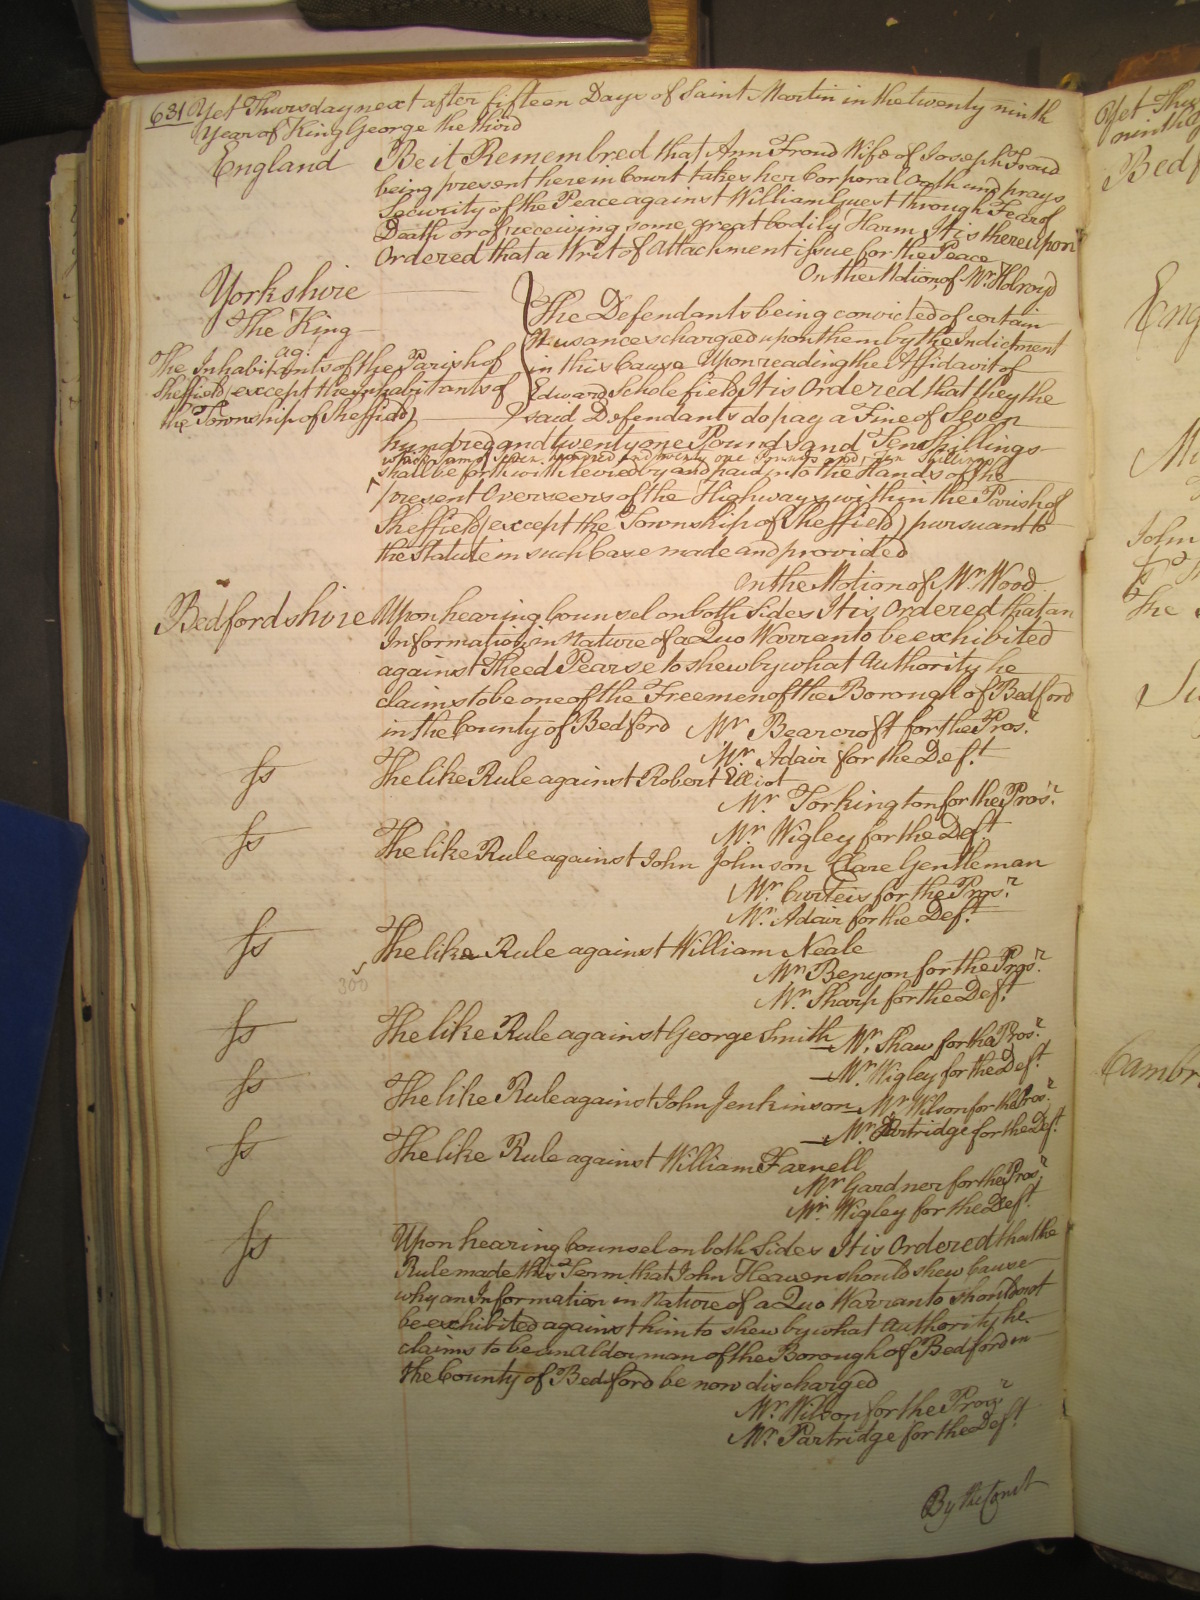 631 Yet Thursday next after fifteen Days of Saint Martin in the twenty ninth
Year of King George the third
England Be it Remembred that Ann Froud Wife of Joseph Froud
being present here in Court takes her Corporal Oath and prays
Security of the Peace against William Guest through Fear of
Death or of receiving some great bodily Harm It is thereupon
Ordered that a Writ of Attachment issue for the Peace
On the Motion of Mr. Holroyd
Yorkshire
The King
ag.
The Inhabitants of the Parish of
Sheffield (except the inhabitants of
the Township of Sheffield)
The Defendants being convicted of certain
Nusances charged upon them by the Indictment
in this Cause Upon reading the Affidavit of
Edward Scholefield It is Ordered that they the
said Defendants do pay a Fine of Seven
hundred and twenty one Pounds and Ten Shillings
which said seven hundred and twenty one Pounds and Ten Shillings
shall be forthwith levied by and paid into the Hands of the
present Overseers of the Highways within the Parish of
Sheffield (except the Township of Sheffield) pursuant to
the Statute in such Case made and provided
On the Motion of Mr. Wood
Bedfordshire Upon hearing Counsel on both Sides It is Ordered that an
Information in Nature of a Quo Warranto be exhibited
against Theed Pearse to shew by what Authority he
claims to be one of the Freemen of the Borough of Bedford
in the County of Bedford Mr. Bearcroft for the Pros.r
Mr. Adair for the Def.t
ss The like Rule against Robert Elliot
Mr. Torkington for the Pros.r
Mr. Wigley for the Def.t
ss The like Rule against John Johnson Clare Gentleman
Mr. Curteis for the Pros.r
Mr. Adair for the Def.t
ss The like Rule against William Neale
300
Mr. Benyon for the Pros.r
Mr. Sharp for the Def.t
ss The like Rule against George Smith Mr. Shaw for the Pros.r
Mr. Wigley for the Def.t
ss The like Rule against John Jenkinson Mr. Wilson for the Pros.r
Mr. Partridge for the Def.t
ss The like Rule against William Farnell
Mr. Gardner for the Pros.r
Mr. Wigley for the Def.t
ss Upon hearing Counsel on both Sides It is Ordered that the
Rule made this Term that John Heaven should shew Cause
why an Information in Nature of a Quo Warranto should not
be exhibited against him to shew by what Authority he
claims to be an Alderman of the Borough of Bedford in
the County of Bedford be now discharged
Mr. Wilson for the Pros.r
Mr. Partridge for the Def.t
By the Court